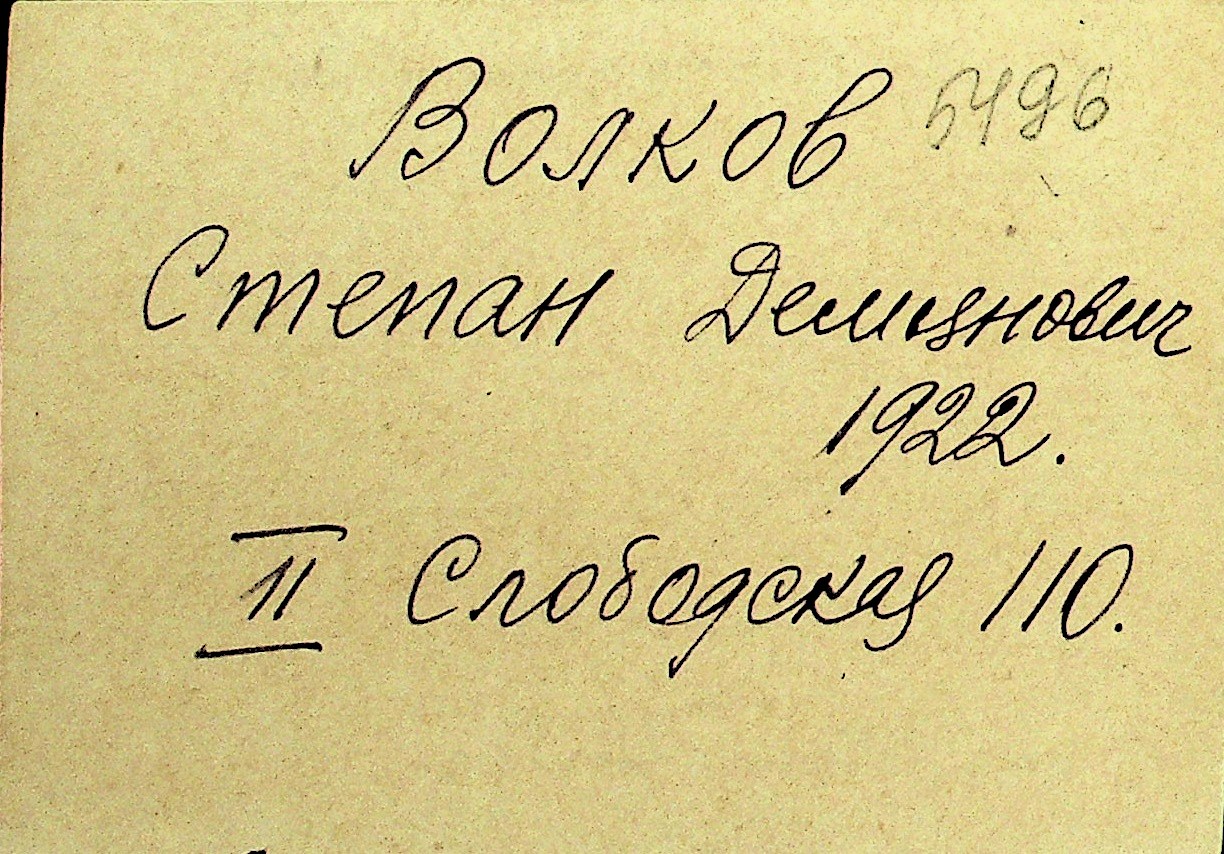 Волков 5496
Степан Демянович
1922.
II Слободская 110.